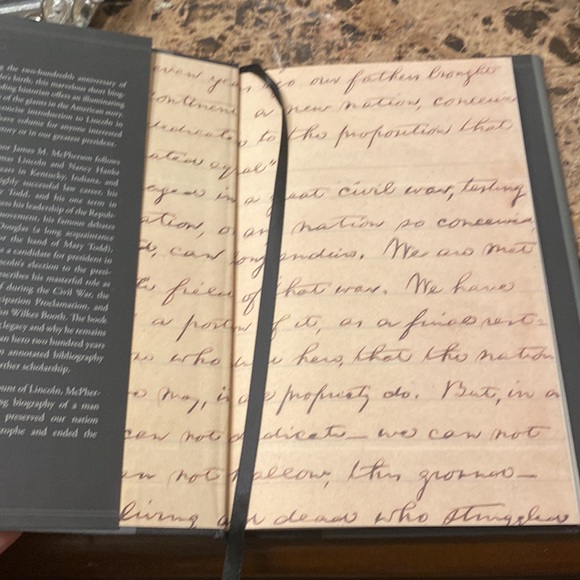 e the two-hundredth anniversary of
's birth, this marvelous short biog-
ding historian offers an illuminating
of the giants in the American story.
concise introduction to Lincoln in
have volume for anyone interested
story or in our greatest president.
or James M. McPherson follows
mas Lincoln and Nancy Hanks
ears in Kentucky, Indiana, and
ighly successful law career, his
Todd, and his one term in
his leadership of the Repub-
movement, his famous debates
Douglas (a long acquaintance
for the hand of Mary Todd),
a candidate for president in
ncoln's election to the presi-
scribes his masterful role as
f during the Civil War, the
cipation Proclamation, and
n Wilkes Booth. The book
legacy and why he remains
an hero two hundred years
annotated bibliography
rther scholarship.
um of Lincoln, McPher-
g biography of a man
preserved our nation
trophe and ended the
even years ago our fathers brought
continent a new nation, conceive
dedicated to the proposition that
ated equal"
aged in a great civil war, testing
ation, or any nation so conceived,
d, can long endure. We are met
le field of that war. We have
a portion of it, as a final rest-
se who died here, that the nation
e may, in all propriety do. But, in a
can not dedicate — we can not
an not hallow, this ground—
living and dead who struggled